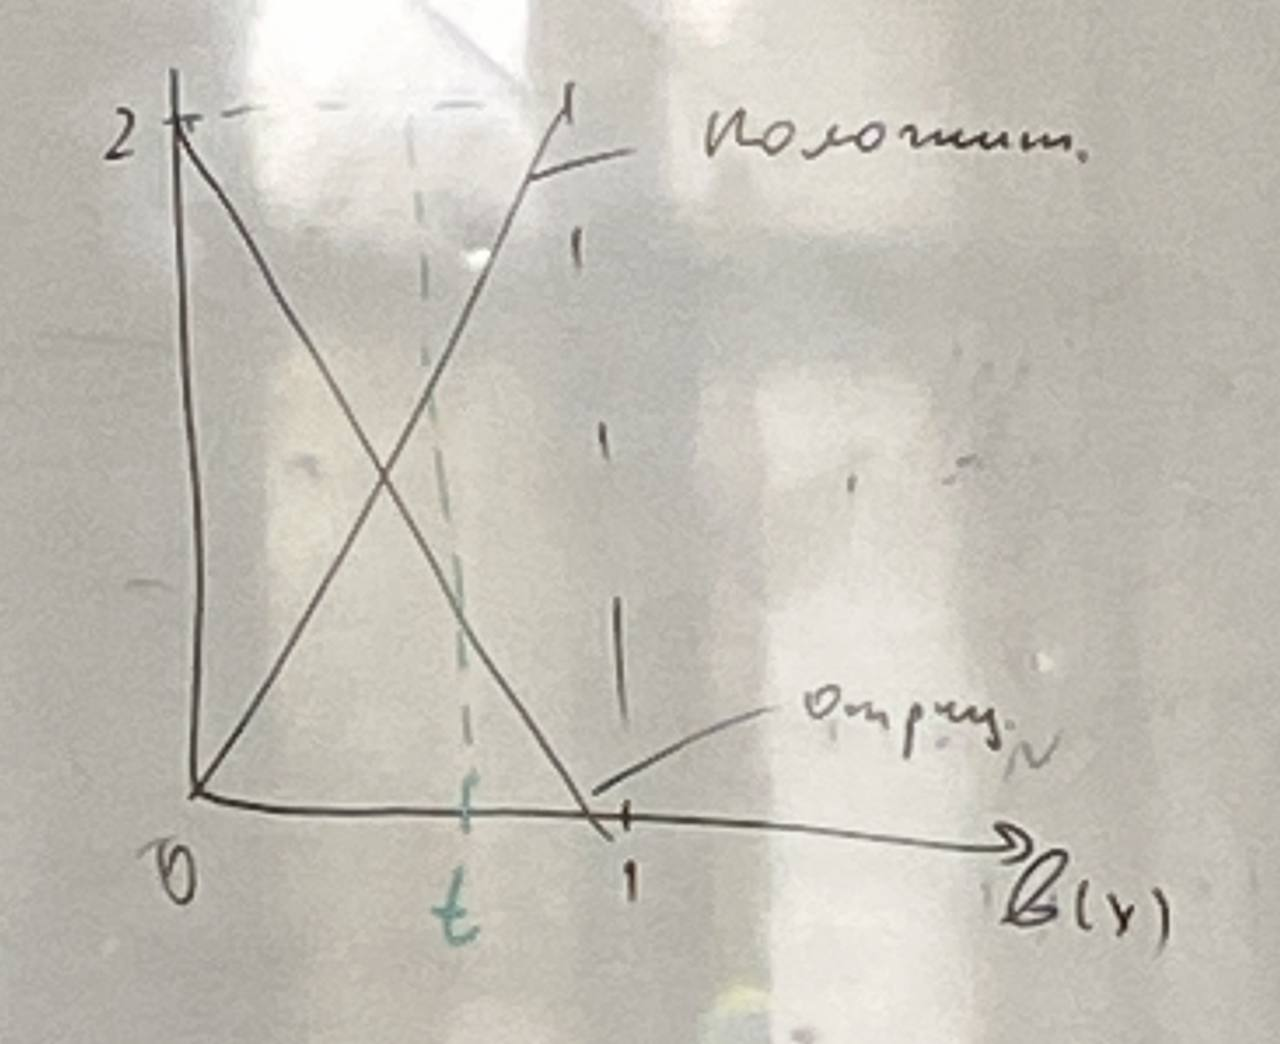 2
Положит.
Отриц.
0
t
1
b(x)